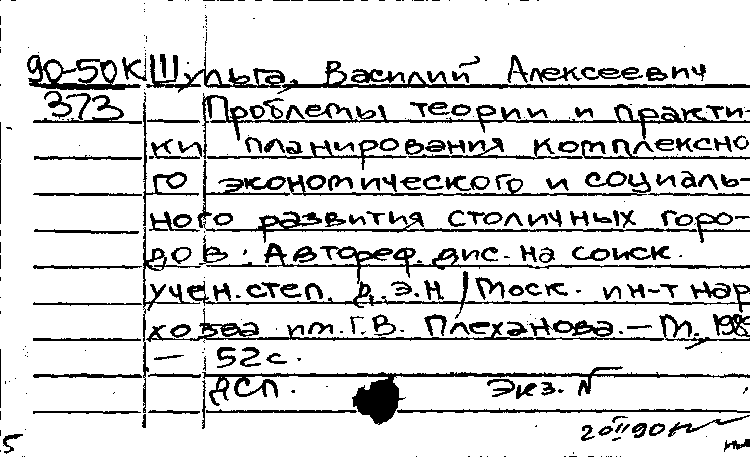 90-50К Шульга, Василий Алексеевич
373 Проблемы теории и практи-
ки планирования комплексно
го экономического и социаль-
ного развития столичных горо-
дов: Автореф. дис. на соиск.
учен. степ. д.э.н / Моск. ин-т нар
хозва им. Г.В. Плеханова. – М., 1989
– 52 с.
ДСП. Экз. №
20 II 90
5